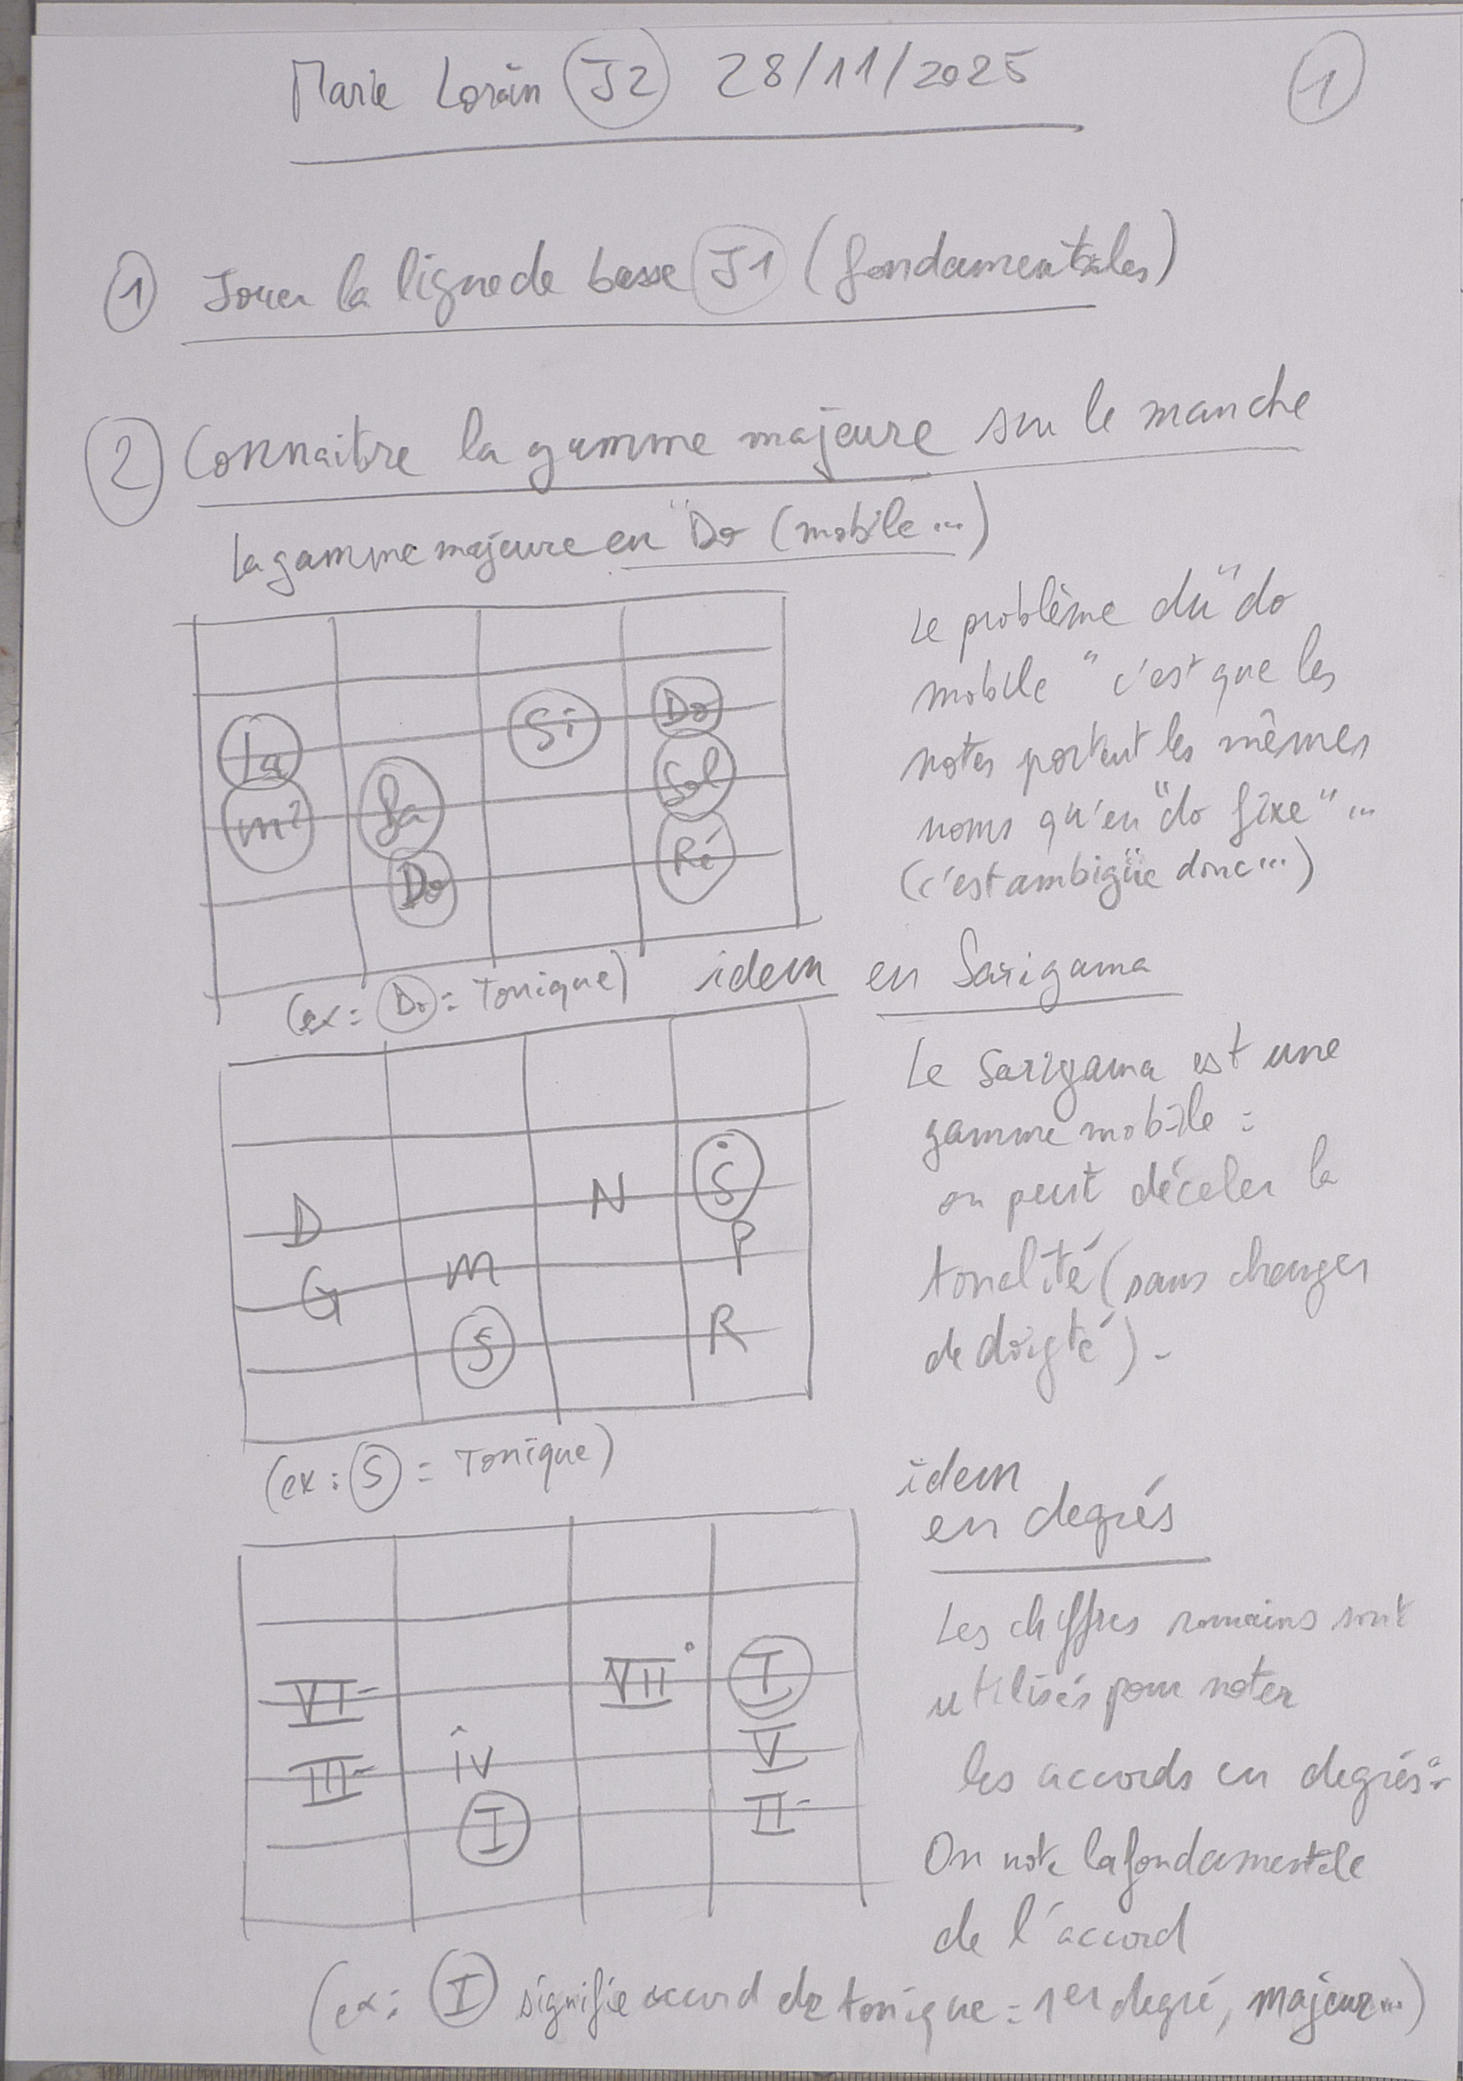 Marie Lorin J2 28/11/2025
1
1 Jouer la ligne de basse J1 (fondamentales)
2 Connaitre la gamme majeure sur le manche
La gamme majeure en "Do (mobile...)
Le problème du "do
mobile" c'est que les
notes portent les mêmes
noms qu'en "do fixe"...
(c'est ambigüe donc...)
Si Do
La Sol
mi fa
Do Ré
(ex: Do = Tonique)
idem en Sarigama
Le Sarigama est une
gamme mobile :
on peut déceler la
tonalité (sans changer
de doigté).
D N Ṡ
G m P
S R
(ex : S = Tonique)
idem
en degrés
Les chiffres romains sont
utilisés pour noter
les accords en degrés :
On note la fondamentale
de l'accord
VI- VII° I
III- iv V
I II-
(ex: I signifie accord de tonique = 1er degré, majeur...)